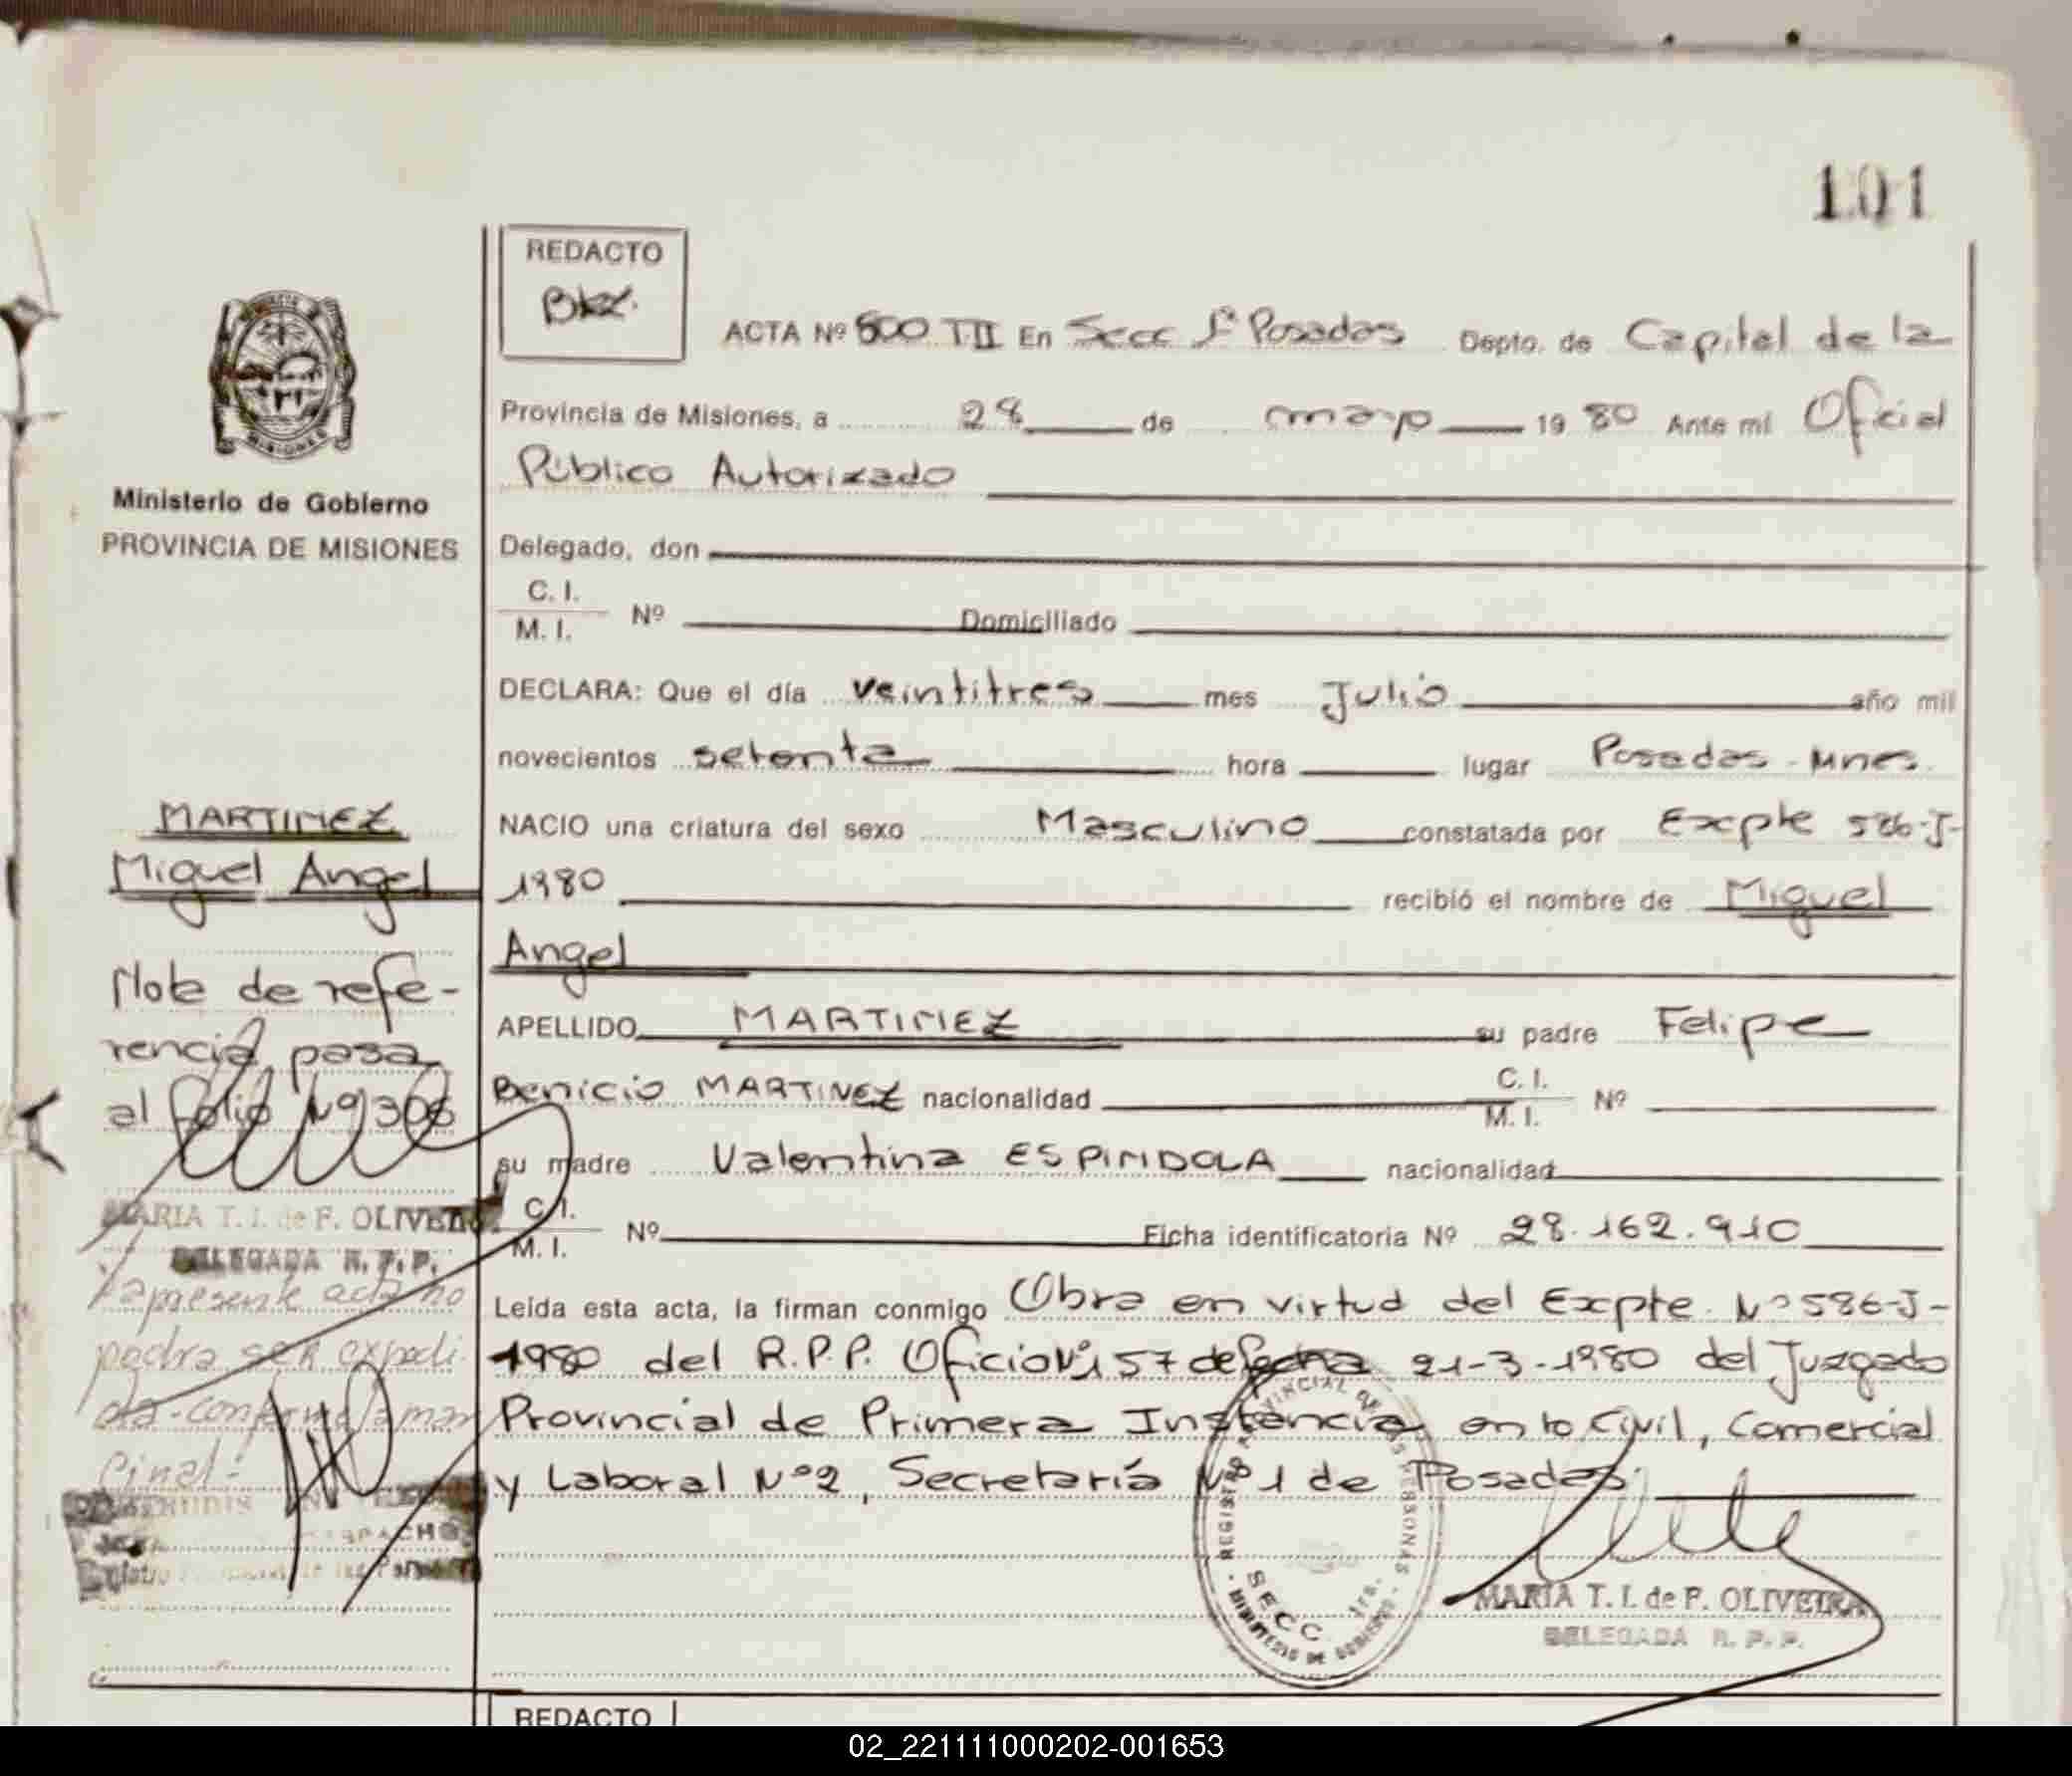 101
REDACTO
ACTA Nº 600 T.II En Secc 1ª Posadas Depto. de Capital de la
Provincia de Misiones, a 28 de mayo 1980 Ante mi Oficial
Público Autorizado
Ministerio de Gobierno
PROVINCIA DE MISIONES
Delegado, don
C. I.
M. I. Nº Domiciliado
DECLARA: Que el día veintitres mes Julio año mil
novecientos setenta hora lugar Posadas - Mnes.
NACIO una criatura del sexo Masculino constatada por Expte 586-J-
1980 recibió el nombre de Miguel
Angel
APELLIDO MARTINEZ su padre Felipe
Benicio MARTINEZ nacionalidad C. I. M. I. Nº
su madre Valentina ESPINDOLA nacionalidad
C. I.
M. I. Nº Ficha identificatoria Nº 28.162.910
Leída esta acta, la firman conmigo Obra en virtud del Expte. Nº 586-J-
1980 del R.P.P. Oficio Nº 157 de fecha 21-3-1980 del Juzgado
Provincial de Primera Instancia en lo Civil, Comercial
y Laboral Nº 2, Secretaría Nº 1 de Posadas.
MARIA T. I. de F. OLIVEIRA
DELEGADA R. P. P.
SECC. 1ra.
MARTINEZ
Miguel Angel
Nota de refe-
rencia pasa
al folio Nº 306
MARIA T. I. de F. OLIVEIRA
DELEGADA R. P. P.
La presente acta no
podra ser expedi
da - conforme a mar
ginal:
REDACTO
02_221111000202-001653